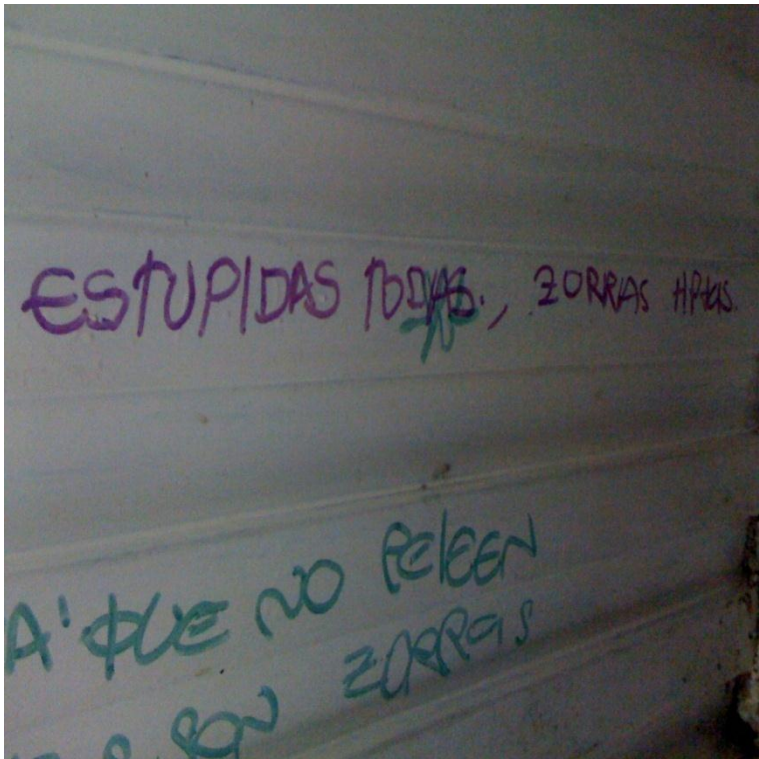 ESTUPIDAS TODAS., ZORRAS HPtas.
A' QUE NO PELEEN
SON ZORRAS